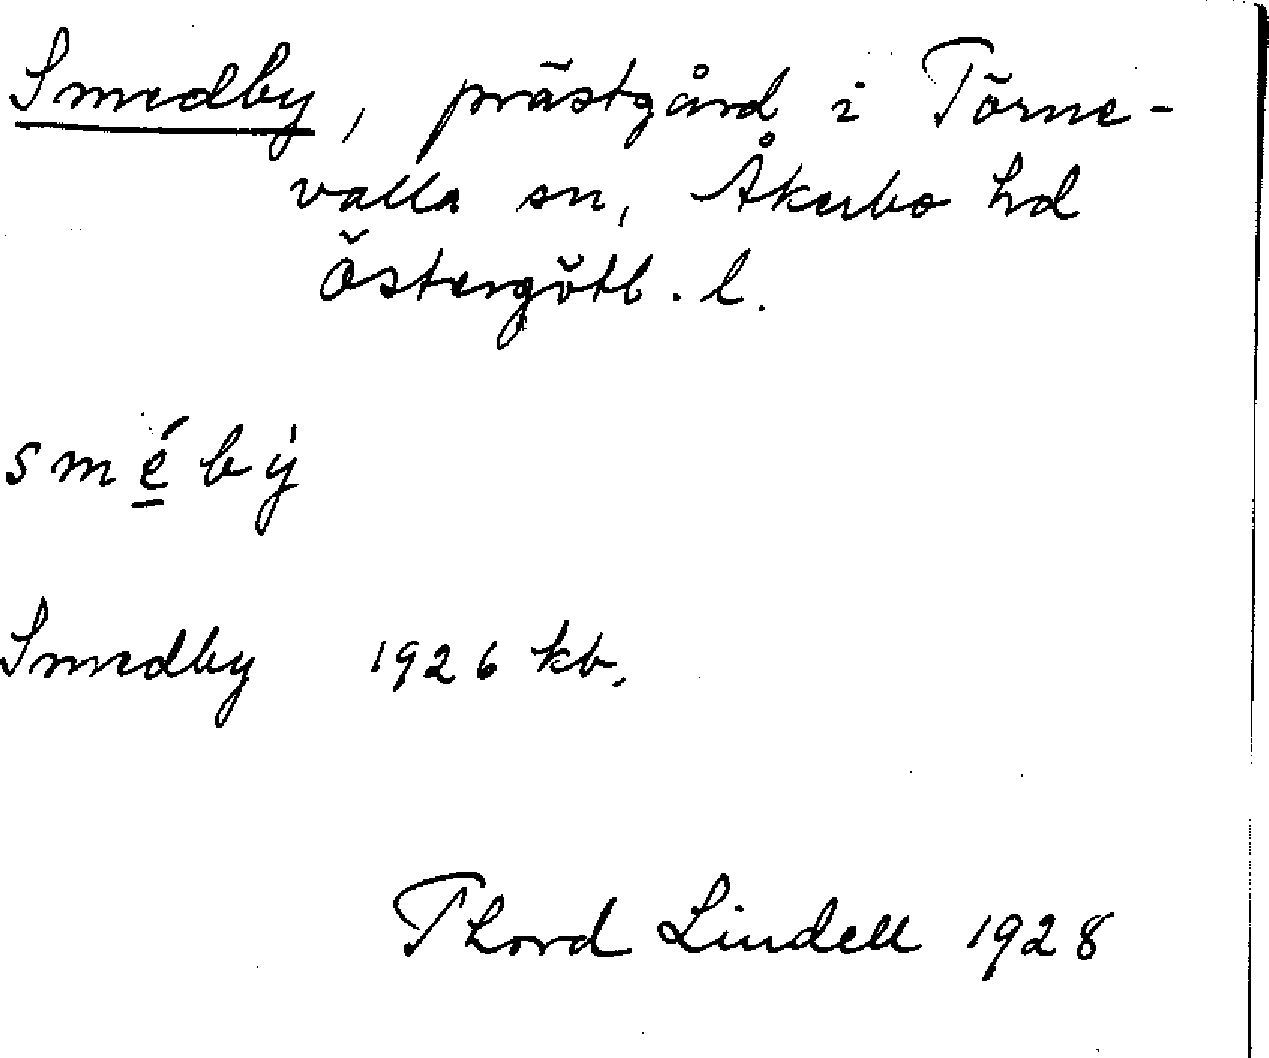 Smedby, prästgård i Törne-
valla sn, Åkerbo hd
Östergötl. l.
smé̲bẏ
Smedby 1926 kb.
Thord Lindell 1928